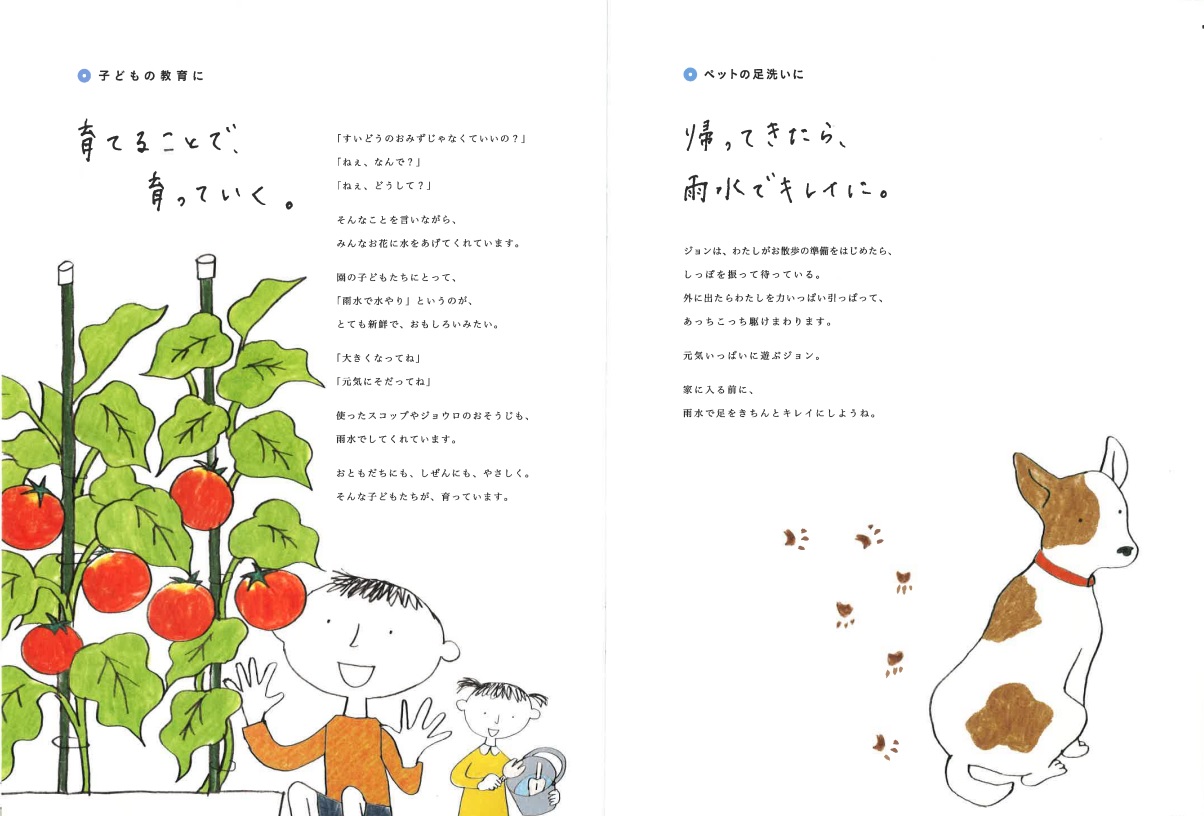 子どもの教育に
育てることで、
育っていく。
「すいどうのおみずじゃなくていいの？」
「ねぇ、なんで？」
「ねぇ、どうして？」
そんなことを言いながら、
みんなお花に水をあげてくれています。
園の子どもたちにとって、
「雨水で水やり」というのが、
とても新鮮で、おもしろいみたい。
「大きくなってね」
「元気にそだってね」
使ったスコップやジョウロのおそうじも、
雨水でしてくれています。
おともだちにも、しぜんにも、やさしく。
そんな子どもたちが、育っています。
ペットの足洗いに
帰ってきたら、
雨水でキレイに。
ジョンは、わたしがお散歩の準備をはじめたら、
しっぽを振って待っている。
外に出たらわたしを力いっぱい引っぱって、
あっちこっち駆けまわります。
元気いっぱいに遊ぶジョン。
家に入る前に、
雨水で足をきちんとキレイにしようね。